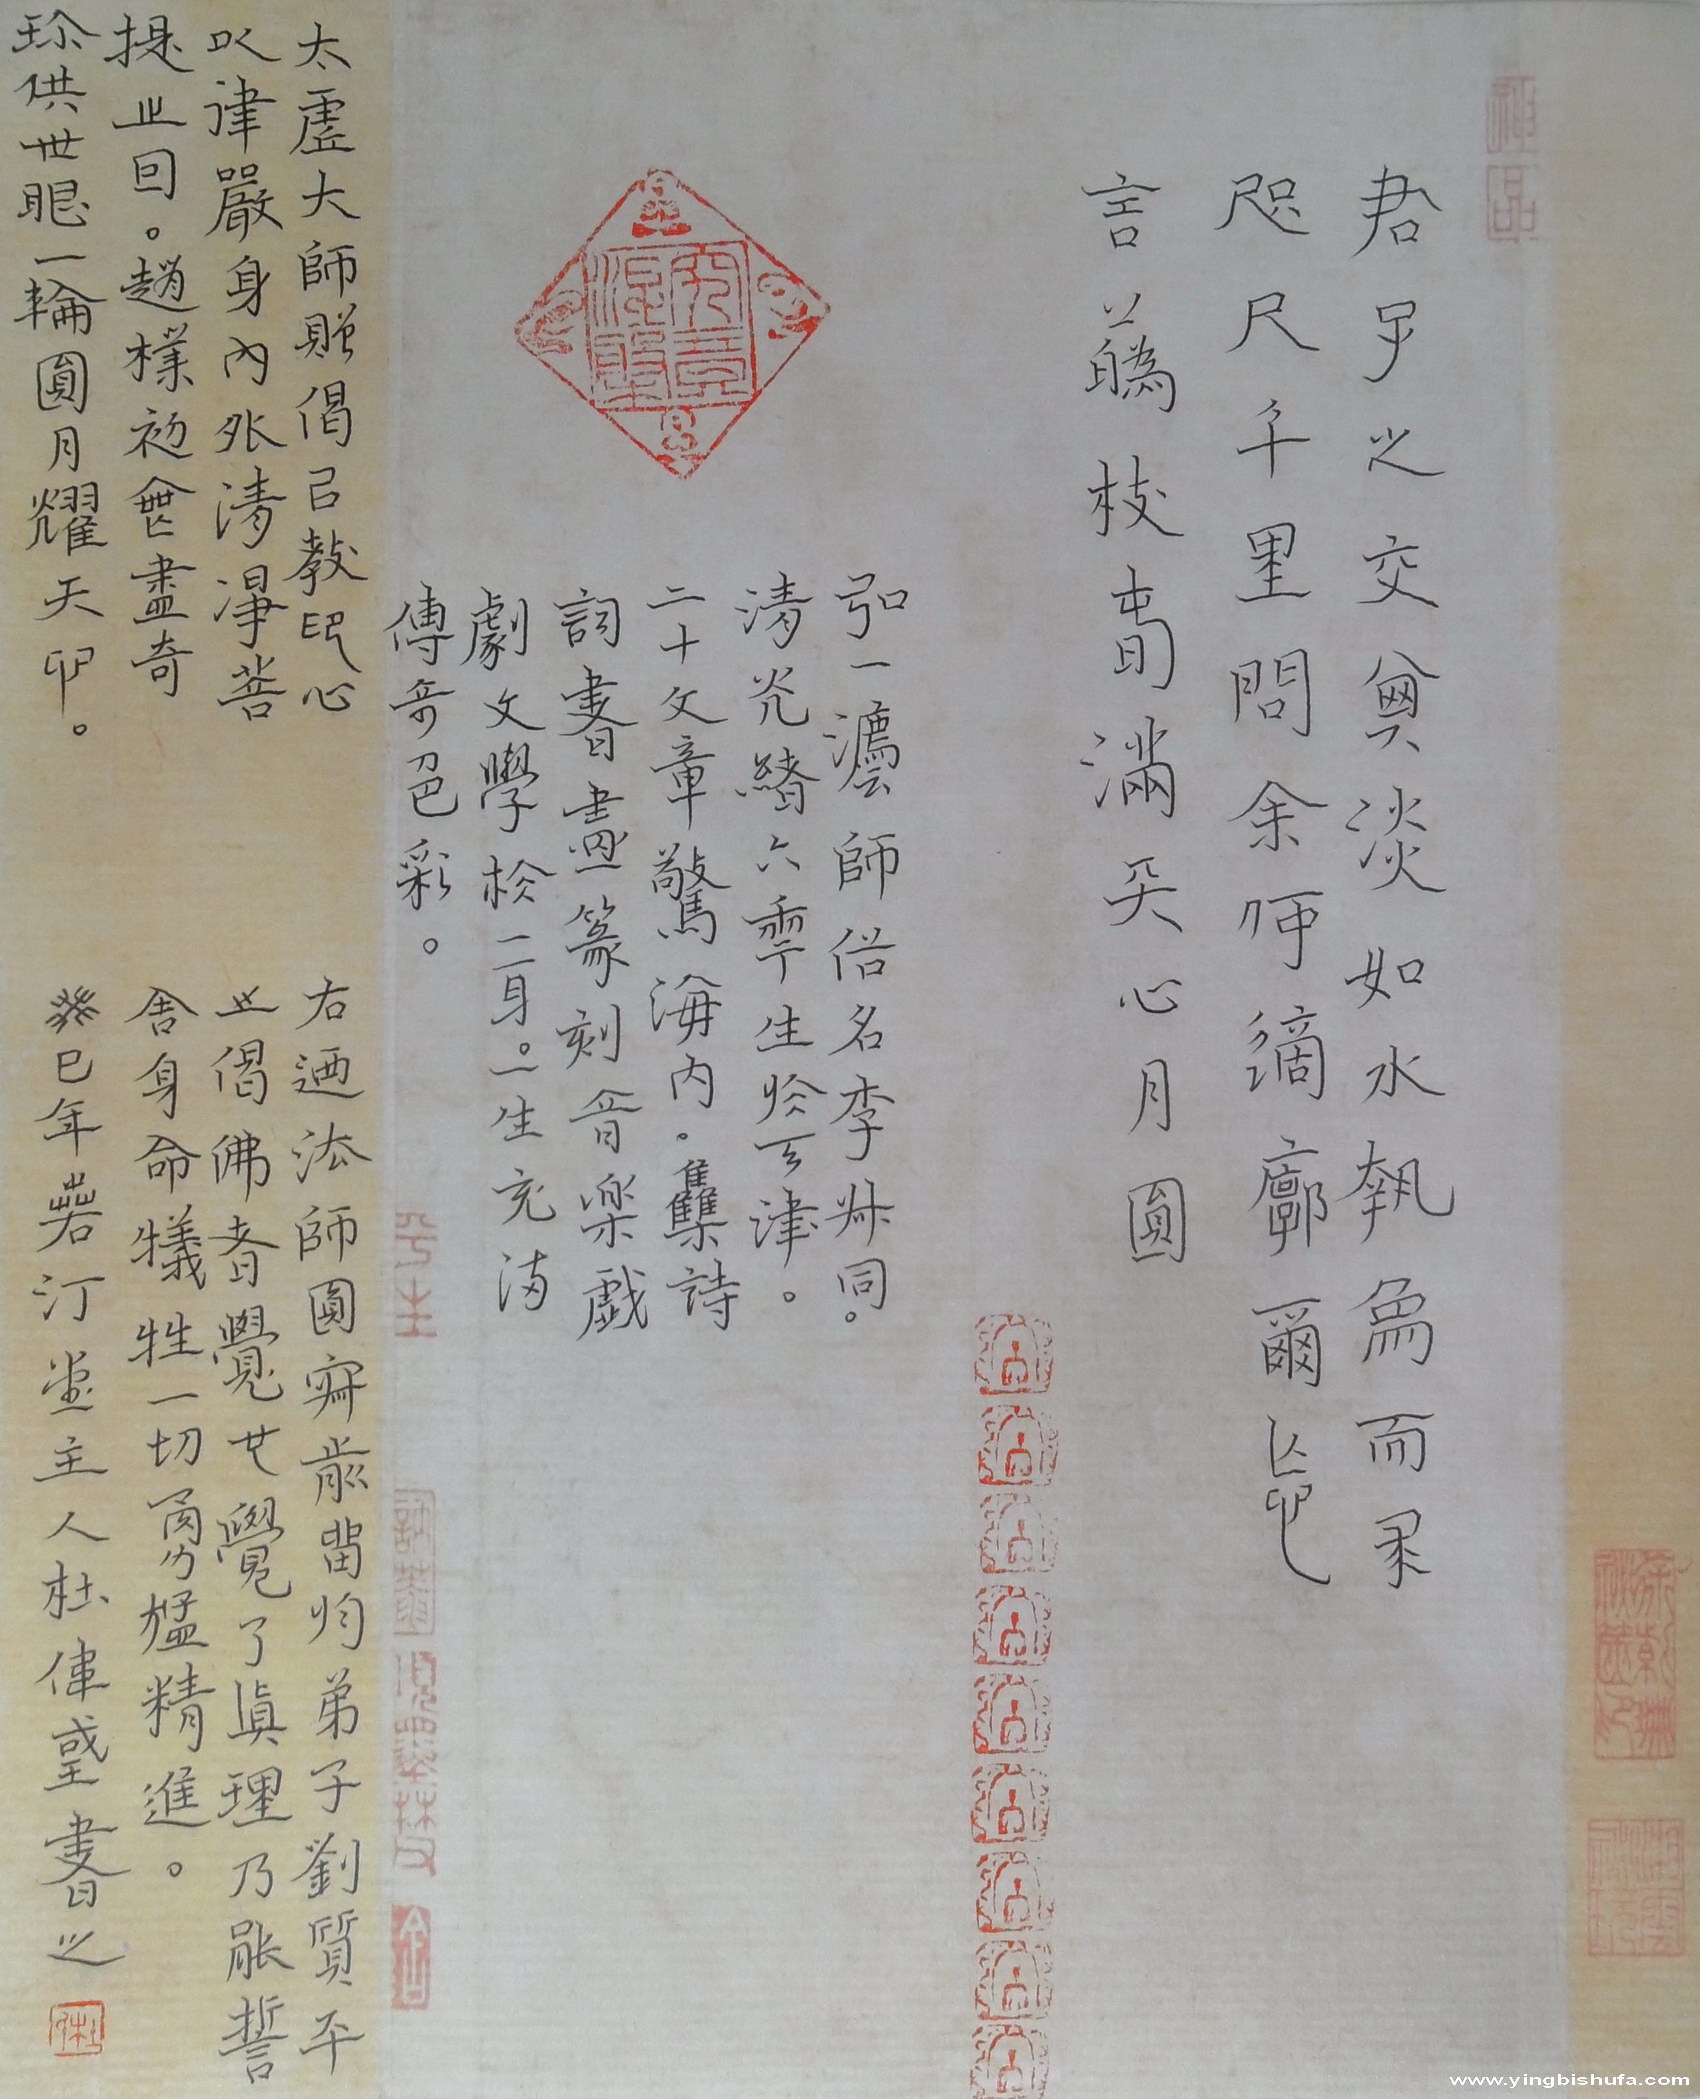 君子之交其淡如水執象而求
咫尺千里問余何適廓爾忘
言華枝春滿天心月圓
弘一灋師俗名李叔同。
清光緒六年生於天津。
二十文章驚海內。集詩
詞書畫篆刻音樂戲
劇文學於一身。一生充滿
傳奇色彩。
太虛大師贈偈以教印心
以律嚴身內外清淨菩
提之因。趙樸初無盡奇
珍供世眼一輪圓月耀天心。
右迺法師圓寂前留弟子劉質平
之偈佛者覺也覺了真理乃能誓
舍身命犧牲一切勇猛精進。
癸巳年若汀堂主人杜偉書之
www.yingbishufa.com